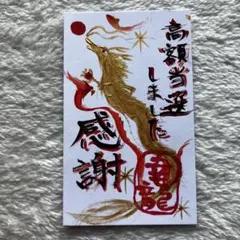 高額当選
しました
感謝